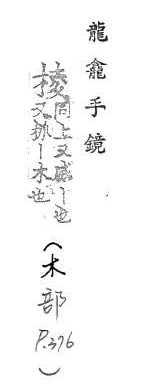 龍龕手鏡
棱 同上又威丨也
又柧丨木也
(木部 P.376)